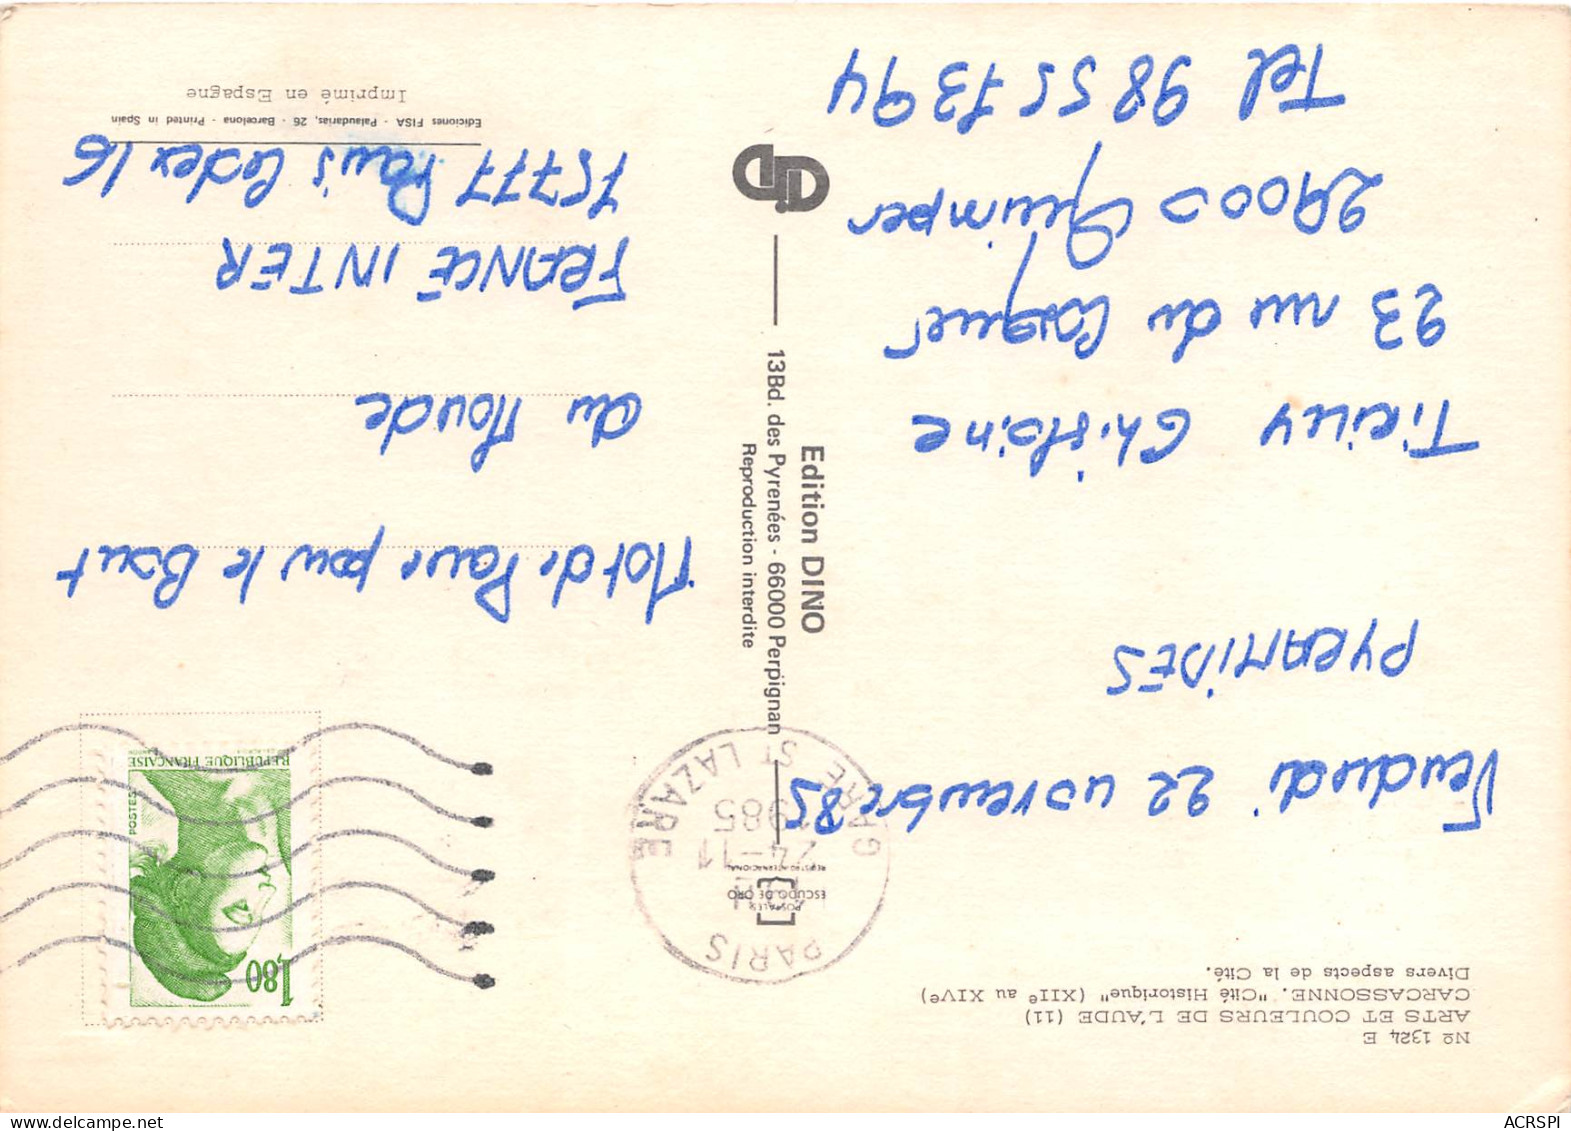 Nº 1324 E
ARTS ET COULEURS DE L'AUDE (11)
CARCASSONNE. "Cité Historique" (XIIe au XIVe)
Divers aspects de la Cité.
Vendredi 22 novembre 85
PYRAMIDES
TIRILLY Ghislaine
23 rue du
29000 Quimper
Tel 98 55 73 94
POSTALES
ESCUDO DE ORO
REGISTRO INTERNACIONAL
PARIS
24-11
1985
GARE ST LAZARE
Edition DINO
13Bd. des Pyrenées - 66000 Perpignan
Reproduction interdite
1,80
POSTES
REPUBLIQUE FRANCAISE
Mot de Passe pour le Bout
du Monde
FRANCE INTER
75777 Paris Cedex 16
Ediciones FISA - Palaudarias, 26 - Barcelona - Printed in Spain
Imprimé en Espagne
ACRSPI